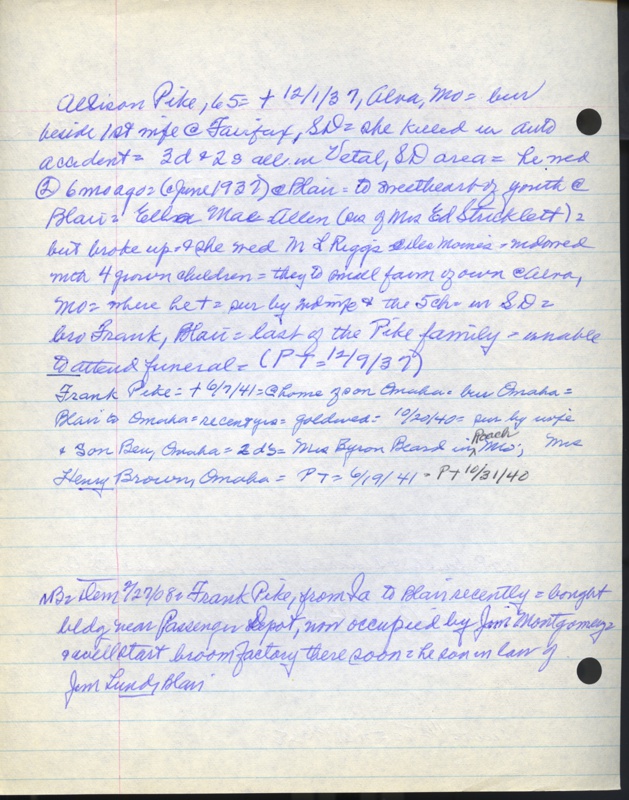 Allison Pike, 65 = + 12/1/37, Alva, Mo = bur
beside 1st wife @ Fairfax, SD = she killed in auto
accident = 3 d & 2 s all in Vetal, SD area = he wed
② 6 mo ago = (c June 1937) @ Blair = to sweetheart of youth @
Blair = Ella Mae Allen (sis of Mrs Ed Stricklett) =
but broke up & she wed M L Riggs Des Moines = widowed
with 4 grown children = they to small farm of own @ Alva,
Mo = where he + = sur by wid wife & the 5 ch = in SD =
bro Frank, Blair = last of the Pike family = unable
to attend funeral = (PT = 12/9/37)
Frank Pike = + 6/7/41 = @ home of son Omaha = bur Omaha =
Blair to Omaha = recent yrs = gold wed = 10/20/40 = sur by wife
& son Ben, Omaha = 2 ds = Mrs Byron Beard in Roach Mo; Mrs
Henry Brown, Omaha = PT = 6/19/41 - PT 10/31/40
NB = Item 2/27/08 = Frank Pike, from Ia to Blair recently = bought
bldg near Passenger Depot, now occupied by Jim Montgomery =
& will start broom factory there soon = he son in law of
Jim Lundy Blair